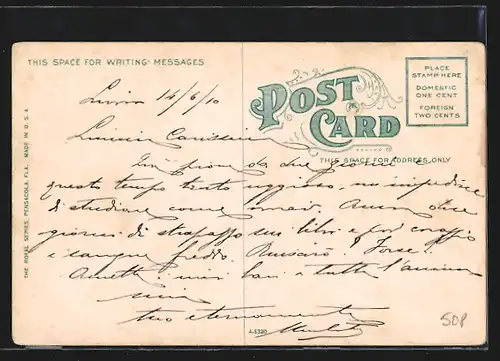 THIS SPACE FOR WRITING MESSAGES
POST CARD
PLACE
STAMP HERE
DOMESTIC
ONE CENT
FOREIGN
TWO CENTS
THIS SPACE FOR ADDRESS ONLY
THE ROYAL SERIES, PENSACOLA, FLA. MADE IN U.S.A.
14/6/10
da due giorni e
questo tempo tanto uggioso, mi impedisce
di studiare come vorrei. Ancora dieci
giorni di strapazzo sui libri e poi coraggio
e sangue freddo. Riuscirò? Forse!
miei baci e tutta l'anima
mia
tuo eternamente
A-5330
50P